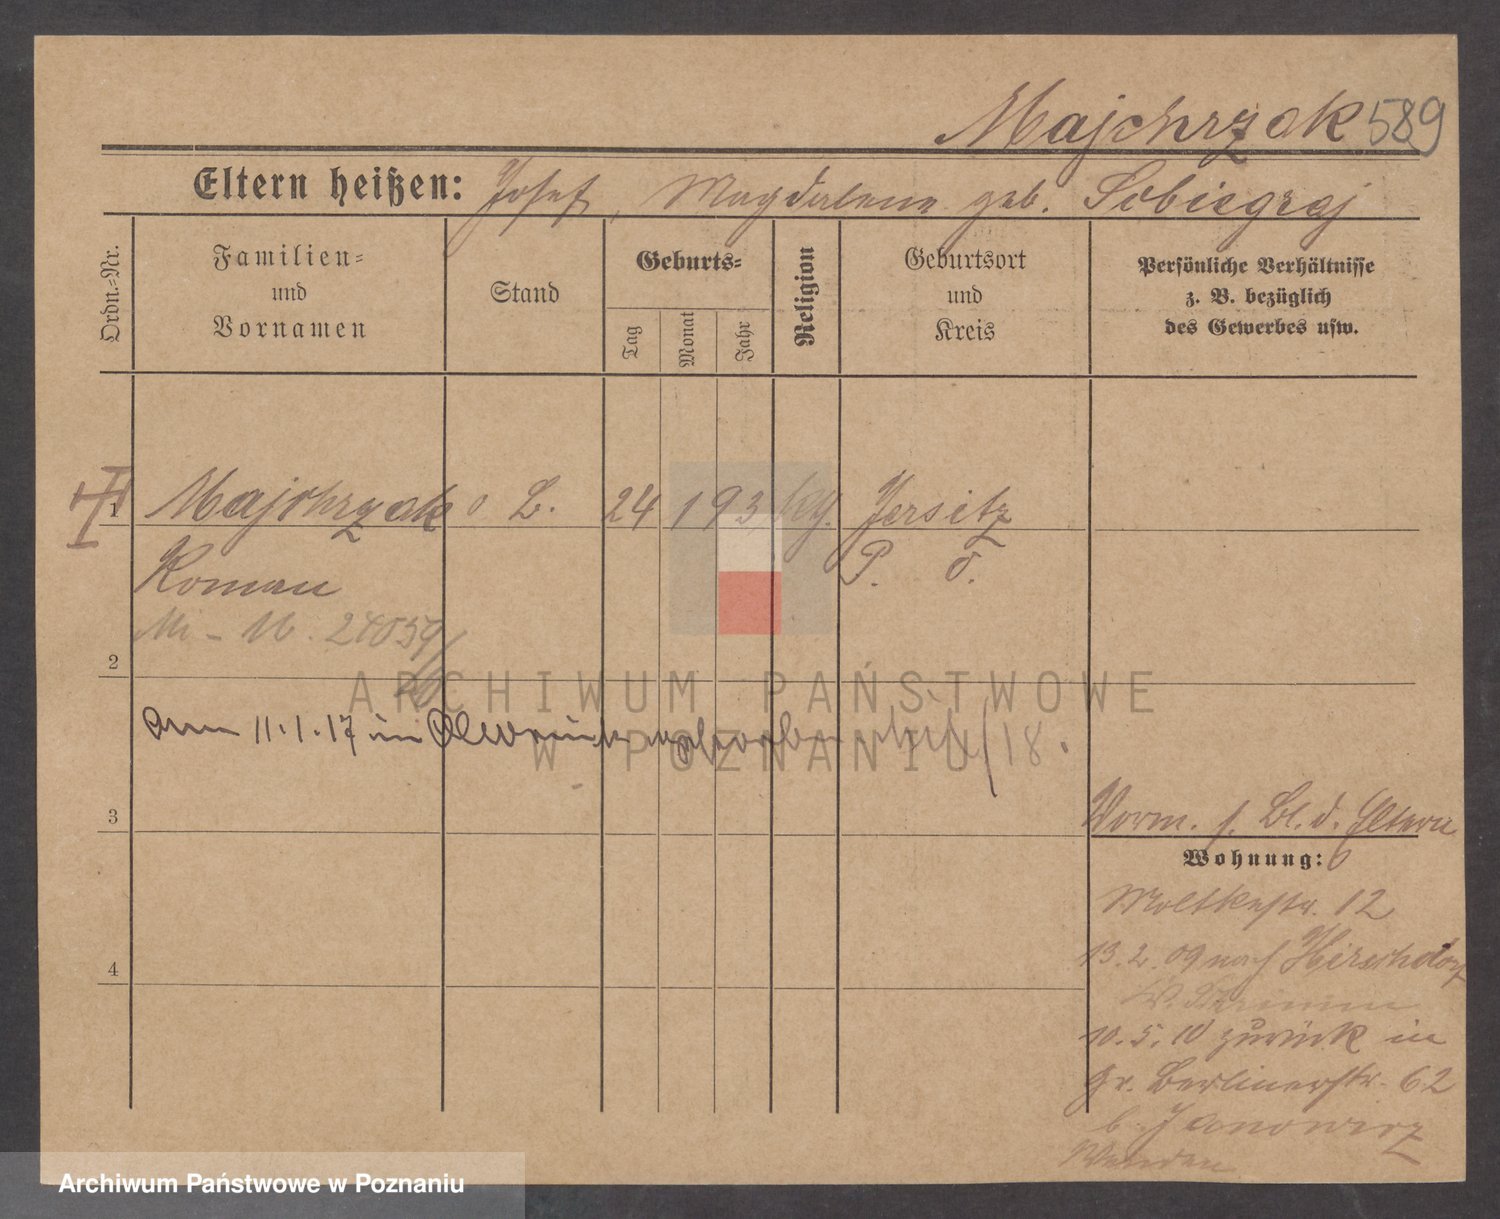 Majchrzak 589
Eltern heißen: Josef, Magdalena geb. Sobiegraj
Ordn.-Nr.
Familien-
und
Vornamen
Stand
Geburts-
Tag
Monat
Jahr
Religion
Geburtsort
und
Kreis
Persönliche Verhältnisse
z. B. bezüglich
des Gewerbes usw.
1
Majchrzak
L. 24 1 93 kth. Jersitz
Roman
P. O.
2
ARCHIWUM PAŃSTWOWE
W POZNANIU
am 11.1.17 in verstorben /18.
3
Vorm. s. Bl. d. Eltern
Wohnung:
Moltkestr. 12
13.2.09 nach Hirschdorf
10.5.10 zurück in
Gr. Berlinerstr. 62
b. Janowicz
4
Archiwum Państwowe w Poznaniu